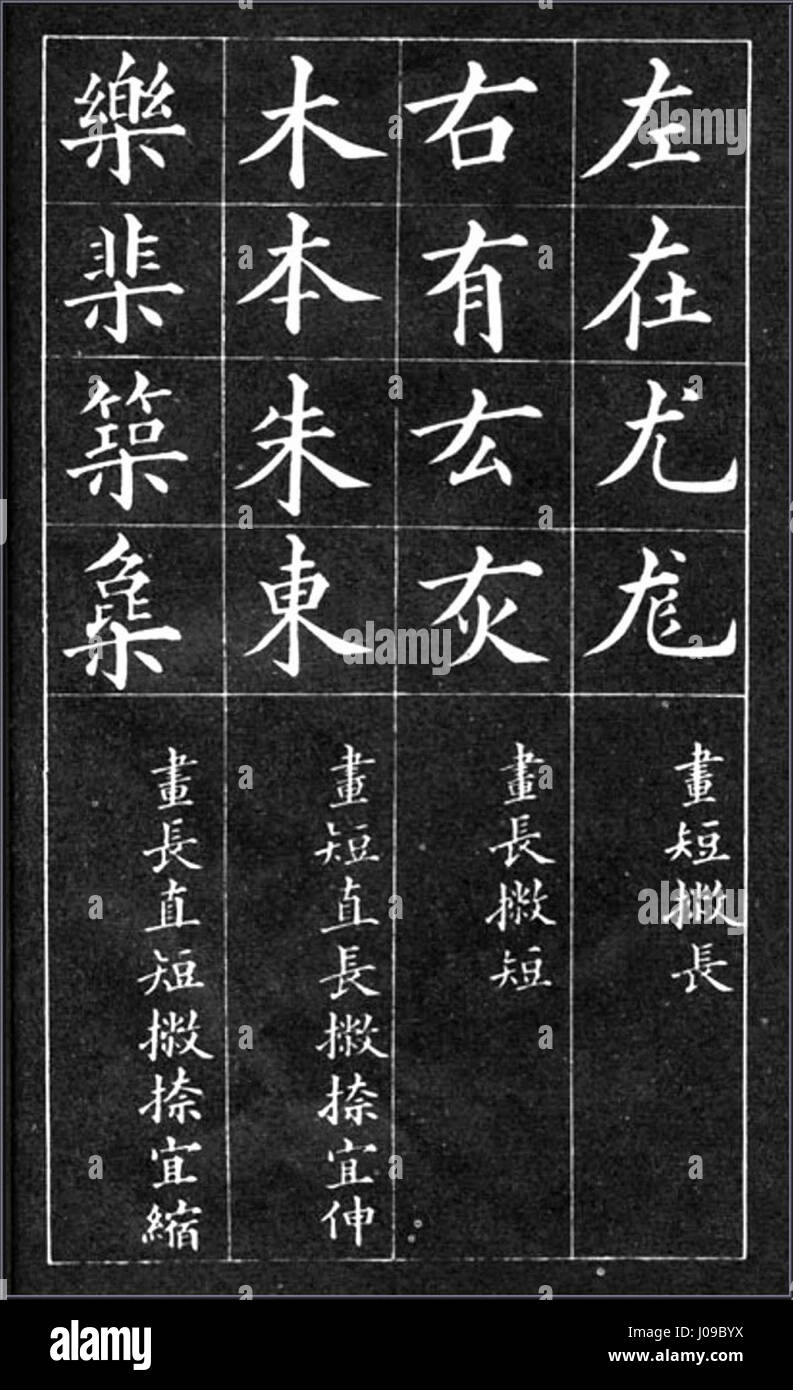 左在尤尨
畫短撇長
右有厷灰
畫長撇短
木本朱東
畫短直長撇捺宜伸
樂棐築
畫長直短撇捺宜縮
alamy
alamy
alamy
alamy
Image ID: J09BYX
www.alamy.com